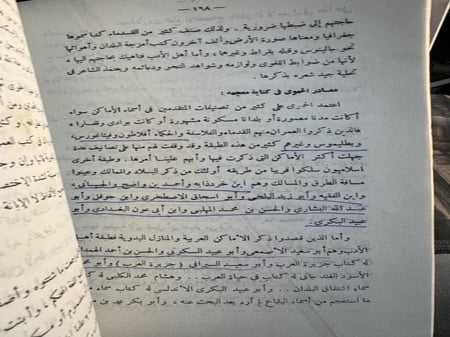 — ١٦٨ —
حاجتهم إلى ضبطها ضرورية . ولذلك صنف كثير من القدماء كتبا سموها
جغرافيا ومعناها صورة الأرض وألف آخرون كتب أمزجة البلدان وأهوائها
نحو جالينوس وقبله بقراط وغيرهما ، وأما أهل الأدب فناهيك بحاجتهم إليها
لأنها من ضوابط اللغوى ولوازمه وشواهد النحو ودعائمه ومعتمد الشاعر فى
تحلية جيد شعره بذكرها .
مصادر الحموى فى كتابه معجمه :
اعتمد الحموى على كثير من تصنيفات المتقدمين فى أسماء الأماكن سواء
أكانت مدنا معمورة أو بلدانا مسكونة مشهورة أو كانت بوادى وقفارا
فالذين ذكروا العمران منهم القدماء والفلاسفة والحكماء أفلاطون وفيثاغورس
وبطليموس وغيرهم كثير من هذه الطبقة وقد وقفت لهم منها على تصانيف عدة
جهلت أكثر الأماكن التى ذكرت فيها وأبهم علينا أمرها . وطبقة أخرى
إسلاميون سلكوا قريبا من طريقة أولئك من ذكر البلاد والممالك وعينوا
مسافة الطرق والمسالك وهم ابن خرداذبه وأحمد بن واضح والجيهانى
وابن الفقيه وأبو زيد البلخى وأبو اسحاق الاصطخرى وابن حوقل وأبو
عبد الله البشارى والحسن بن محمد المهلبى وابن أبى عون البغدادى وأبو
عبيد البكرى .
وأما الذين قصدوا ذكر الأماكن العربية والمنازل البدوية فطبقة أهل
الأدب وهم أبو سعيد الأصمعى وأبو عبيد السكونى والحسن بن أحمد الهمدانى
له كتاب جزيرة العرب وأبو سعيد السيرافى ( جزيرة العرب ) وأبو محمد
الأسود الغندجانى له كتاب فى مياه العرب . . وهشام بن محمد الكلبى له كتاب
سماه اشتقاق البلدان . . وأبو عبيد البكرى الأندلسى له كتاب سماه
ما استعجم من أسماء البقاع لم أره بعد البحث عنه ، وأبو بكر محمد بن